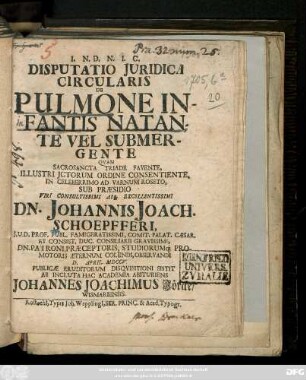 5
1705, 63
20
I. N. D. N. I. C.
DISPUTATIO JURIDICA
CIRCULARIS
DE
PULMONE IN-
FANTIS NATAN-
TE VEL SUBMER-
GENTE
QUAM
SACROSANCTA TRIADE FAVENTE,
ILLUSTRI JCTORUM ORDINE CONSENTIENTE,
IN CELEBERRIMO AD VARNUM ROSETO,
SUB PRÆSIDIO
VIRI CONSULTISSIMI AC EXCELLENTISSIMI
DN. JOHANNIS JOACH.
SCHOEPFFERI,
J.U.D. PROF. PUBL. FAMIGERATISSIMI, COMIT. PALAT. CÆSAR.
ET CONSIST. DUC. CONSILIARII GRAVISSIMI,
DN. PATRONI, PRÆCEPTORIS, STUDIORUM PRO-
MOTORIS ÆTERNUM COLENDI, OBSERVANDI
D. APRIL. MDCCV.
PUBLICÆ ERUDITORUM DISQUISITIONI SISTIT
AB INCLUTA HAC ACADEMIA ABITURIENS
JOHANNES JOACHIMUS
WISMARIENSIS.
Rostochi, Typis Joh. Wepplingi, SER. PRINC. & Acad. Typogr.